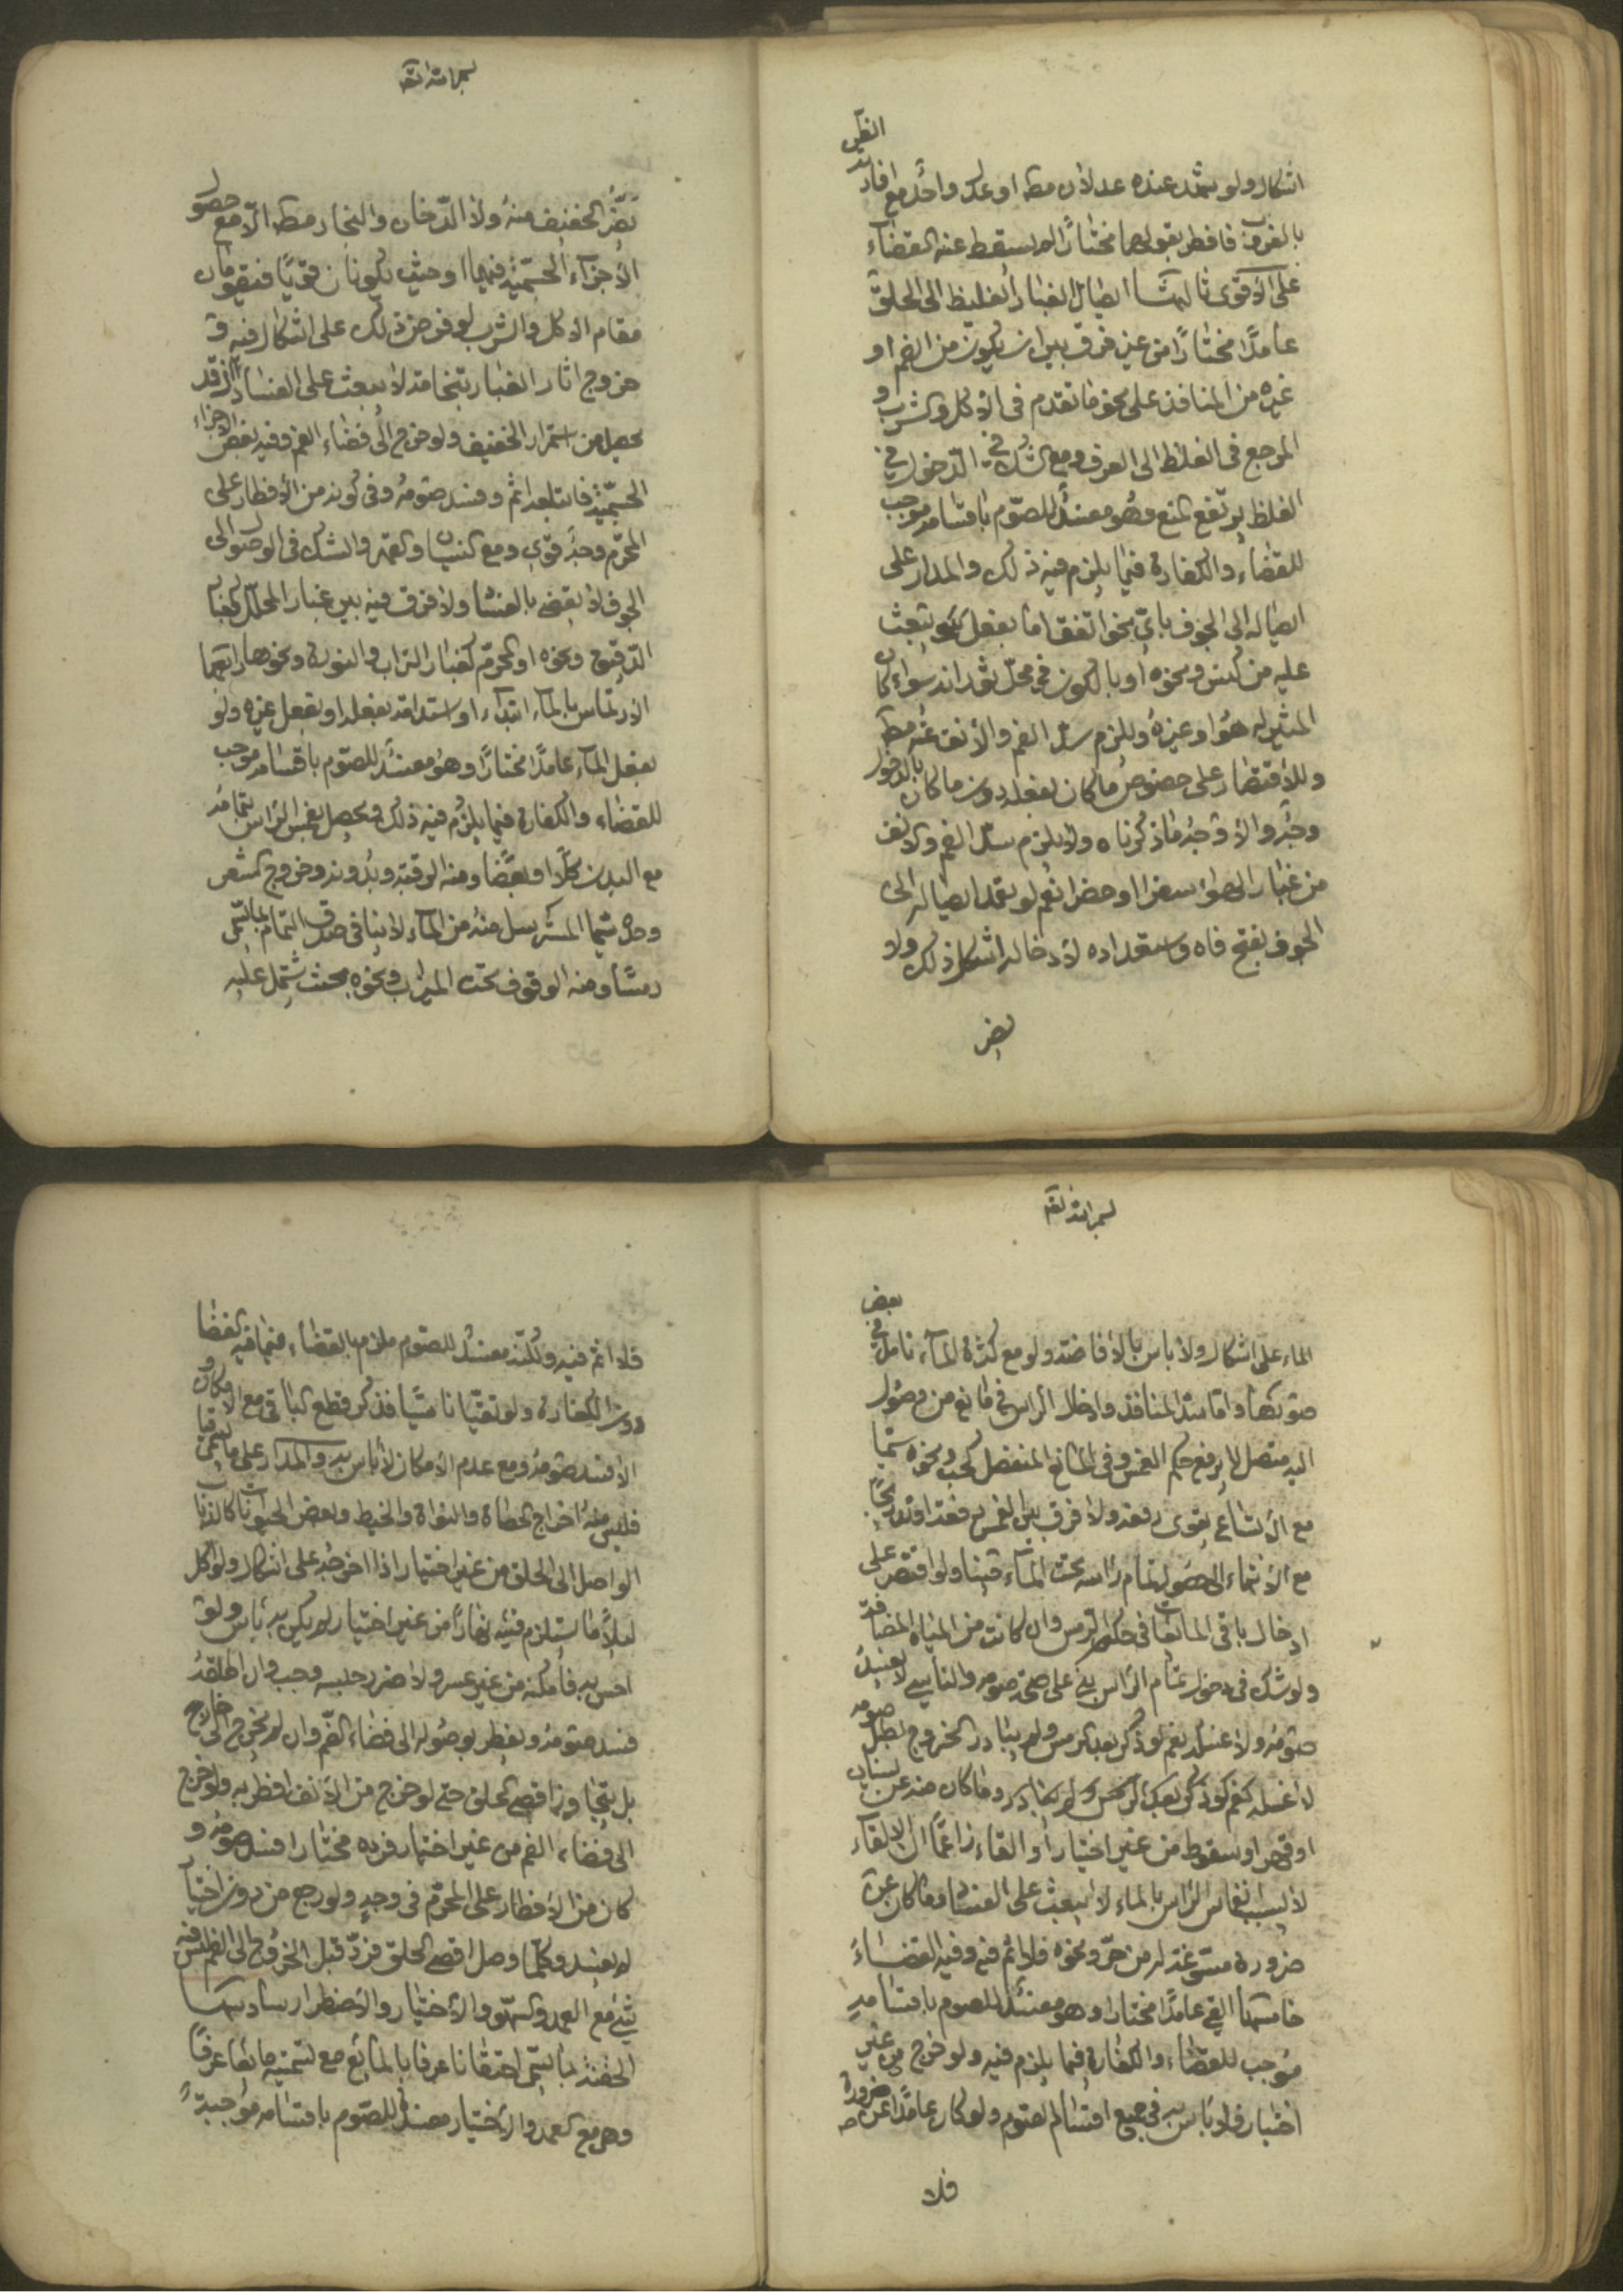 الظن
اشكال ولو شهد عنده عدلان مط او عدل واحد مع افادته
بالغروب فافطر بقولهما مختارًا لم يسقط عنه القضاء
على الاقوى ثالثها ايصال الغبار الغليظ الى الحلق
عامدًا مختارًا من غير فرق بين ان يكون من الفم او
غيره من المنافذ على نحو ما تقدم فى الاكل والشرب و
المرجع فى الغلظ الى العرف ومع الشك فى الدخول فى
الغلظ يرتفع المنع وهو مفسد للصوم باقسامه موجب
للقضاء والكفارة فيما يلزم فيه ذلك والمدار على
ايصاله الى الجوف باى نحو اتفق اما بفعل يبعث
عليه من كنس ونحوه او بالكون فى محل سواء كان
المثير له هو او غيره ويلزم سد الفم والانف عنه مط
وللاقتصار على خصوص ما كان بفعله دون ما كان بالدخول
وجه والاوجه ما ذكرناه ولا يلزم سد الفم والانف
من غبار الهواء سفرا او حضرا نعم لو تعمد ايصاله الى
الجوف بفتح فاه واستعداده لادخاله اشكل ذلك ولا
يضر
بسم الله تعا
تضر الخفيف منه ولا الدخان والبخار مط الا مع حصول
الاجزاء الجسمية فيهما او حيث يكونان قويا فيقومان
مقام الاكل والشرب لو فرض ذلك على اشكال فيه و
خروج اثار الغبار بنخامته لا يبعث على الفساد اذ قد
يحصل من استمرار الخفيف ولو خرج الى فضاء الفم وفيه بعض الاجزاء
الجسمية فابتلعه اثم وفسد صومه وفى كونه من الافطار على
المحرم وجه قوى ومع النسيان والقهر والشك فى الوصول الى
الجوف لا يقضى بالفساد ولا فرق فيه بين غبار المحلل كغبار
الدقيق ونحوه او المحرم كغبار التراب والنورة ونحوها رابعها
الارتماس بالماء ابتداء او استدامة بفعله او بفعل غيره ولو
بفعل الماء عامدًا مختارًا وهو مفسد للصوم باقسامه موجب
للقضاء والكفارة فيما يلزم فيه ذلك ويحصل بغمس الراس بتمامه
مع البدن كلًا او بعضًا ومنه الرقبة وبدونه وخروج الشعر
وحده سيما المسترسل منه من الماء لا ينافى صدق التمام بما يسمى
رمسًا ومنه الوقوف تحت الميزاب ونحوه بحيث يشتمل عليه
بسم الله تعا
بعض
الماء على اشكال ولا باس بالافاضة ولو مع كثرة الماء تامل فى
صورتها واما سد المنافذ وادخال الراس فى مانع من وصول
اليه متصل لا يرفع حكم الغمس وفى المانع المنفصل كحب ونحوه سيما
مع الاتساع يقوى رفعه ولا فرق بين الغمس دفعة او تدريجًا
مع الانتهاء الى حصول تمام راسه تحت الماء حينا ولو اقتصر على
ادخال باقى المايعات فى حكم الرمس وان كانت من المياه المضافة
ولو شك فى دخول تمام الراس بنى على صحة صومه والناسى لا يفسد
صومه ولا غسله نعم لو ذكر بعد الرمس ولم يبادر الخروج بطل صومه
لا غسله كنعم لو ذكر بعد الرمس ولم يبادر وما كان منه عن نسيان
او قهر او سقوط من غير اختيار او القاء زاعمًا ان الالقاء
لا يسبب انغماس الراس بالماء لا يبعث على الفساد وما كان عن
ضرورة مسوغة له من حر ونحوه فلا اثم فيه وفيه القضاء
خامسها القى عامدًا مختارا وهو مفسد للصوم باقسامه
موجب للقضاء والكفارة فيما يلزم فيه ولو خرج من غير
اختيار فلا باس به فى جميع اقسام الصوم ولو كان عامدًا عن ضرورة
فلا
فلا اثم فيه ولكنه مفسد للصوم ملزم بالقضاء فيما فيه القضاء
دون الكفارة ولو تقيا ناسيًا فذكر قطع الباقى مع الامكان و
الا فسد صومه ومع عدم الامكان لا باس به والمدار على ما يسمى قيا
فليس منه اخراج الحصاة والنواة والخيط وبعض الحيوانات كالذباب
الواصل الى الحلق من غير اختيار اذا اخرجه على اشكال ولو اكل
ليلًا ما يستلزم قيئه نهارًا من غير اختيار لم يكن به باس ولو
احس به فامكنه من غير عسر ولا ضرر حبسه وجب وان اطلقه
فسد صومه ويفطر بوصوله الى فضاء الفم وان لم يخرج الى خارج
بل بتجاوز اقصى الحلق حتى لو خرج من الانف افطر به ولو خرج
الى فضاء الفم من غير اختيار فرده مختارا فسد صومه و
كان من الافطار على المحرم فى وجه ولو رجع من دون اختيار
لم يفسد وكلما وصل اقصى الحلق فرد قبل الخروج الى الفم ليس فيه
شئ مع العمد والسهو والاختيار والاضطرار سادسها
الحقنة بما يسمى احتقانا عرفا بالمائع مع تسميته مائعا عرفًا
وهى مع العمد والاختيار مفسدة للصوم باقسامه موجبة